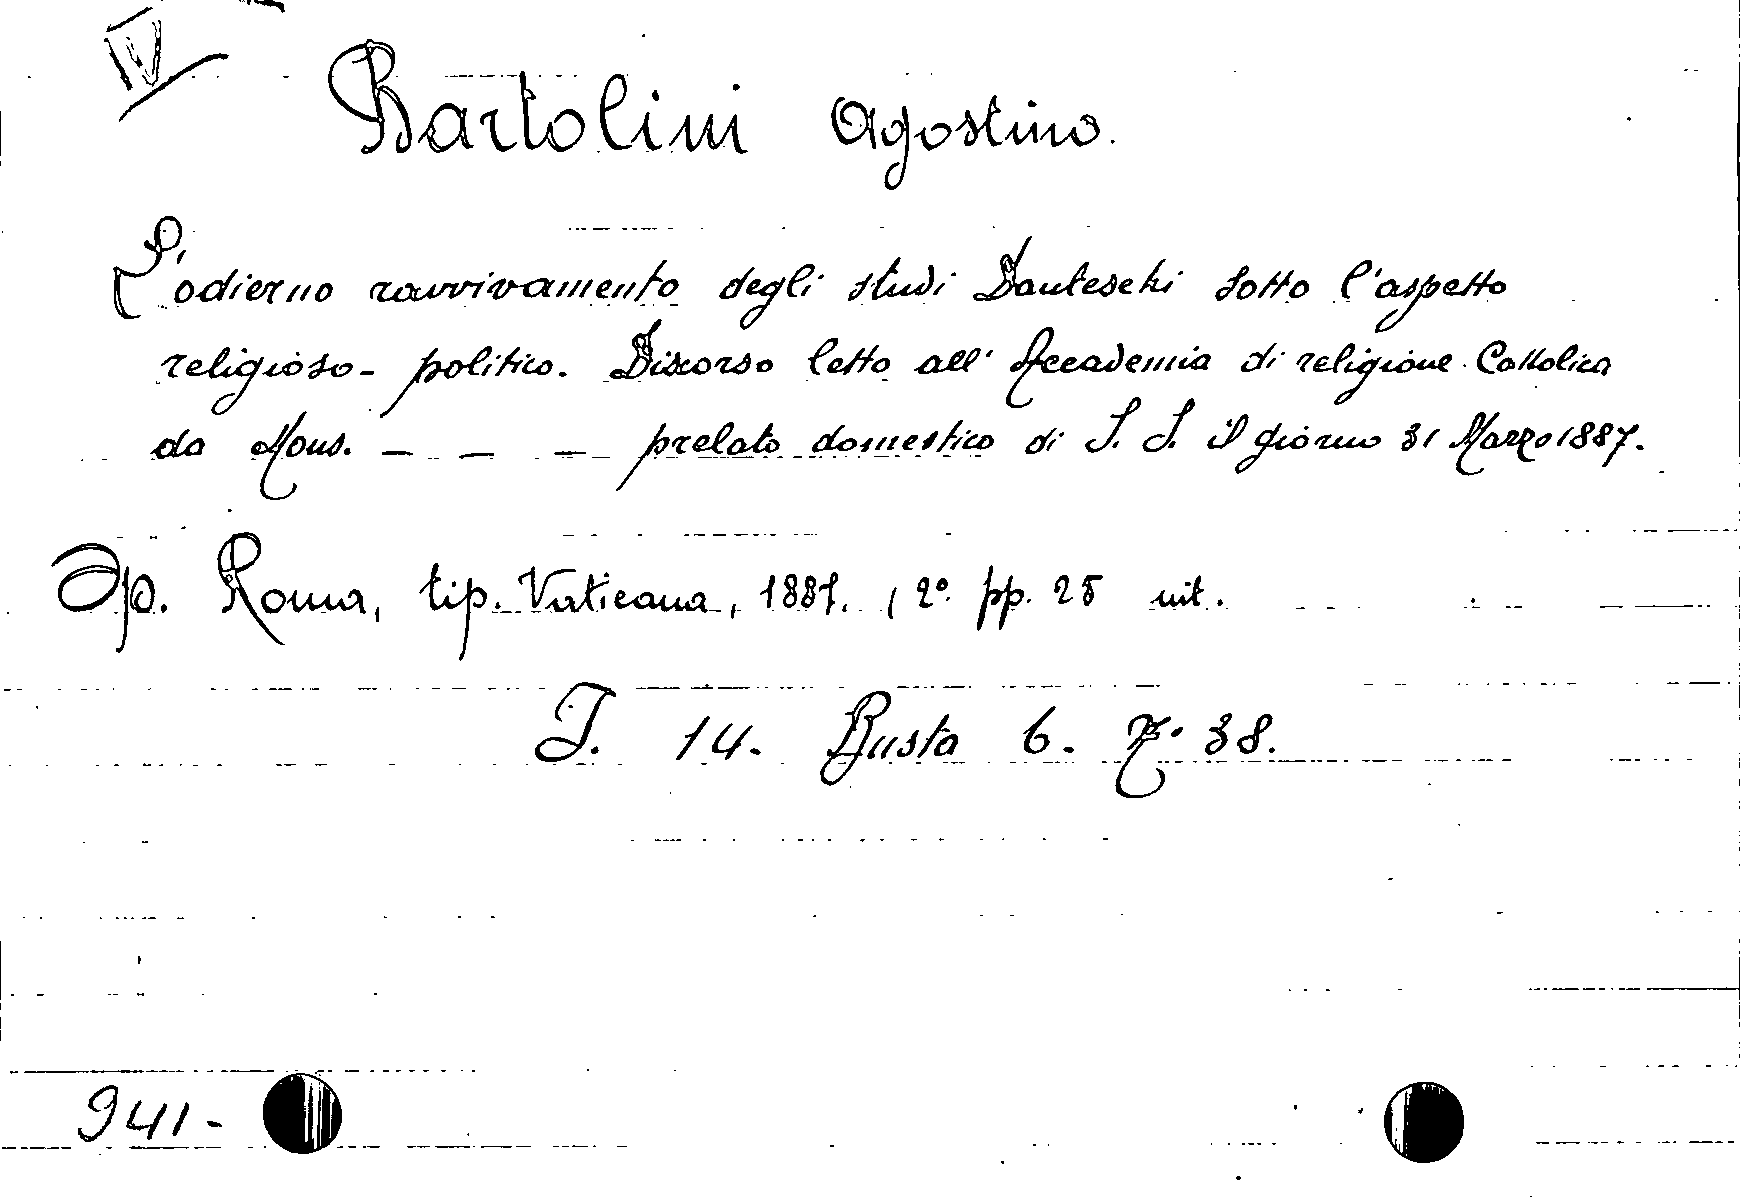 IV
Bartolini Agostino.
L'odierno ravvivamento degli studi Danteschi sotto l'aspetto
religioso-politico. Discorso letto all' Accademia di religione Cattolica
da Mons. — — — prelato domestico di S. S. il giorno 31 Marzo 1887.
Op. Roma, tip. Vaticana, 1887. , 2º. pp. 25 nit.
I. 14. Busta 6. 38.
941-